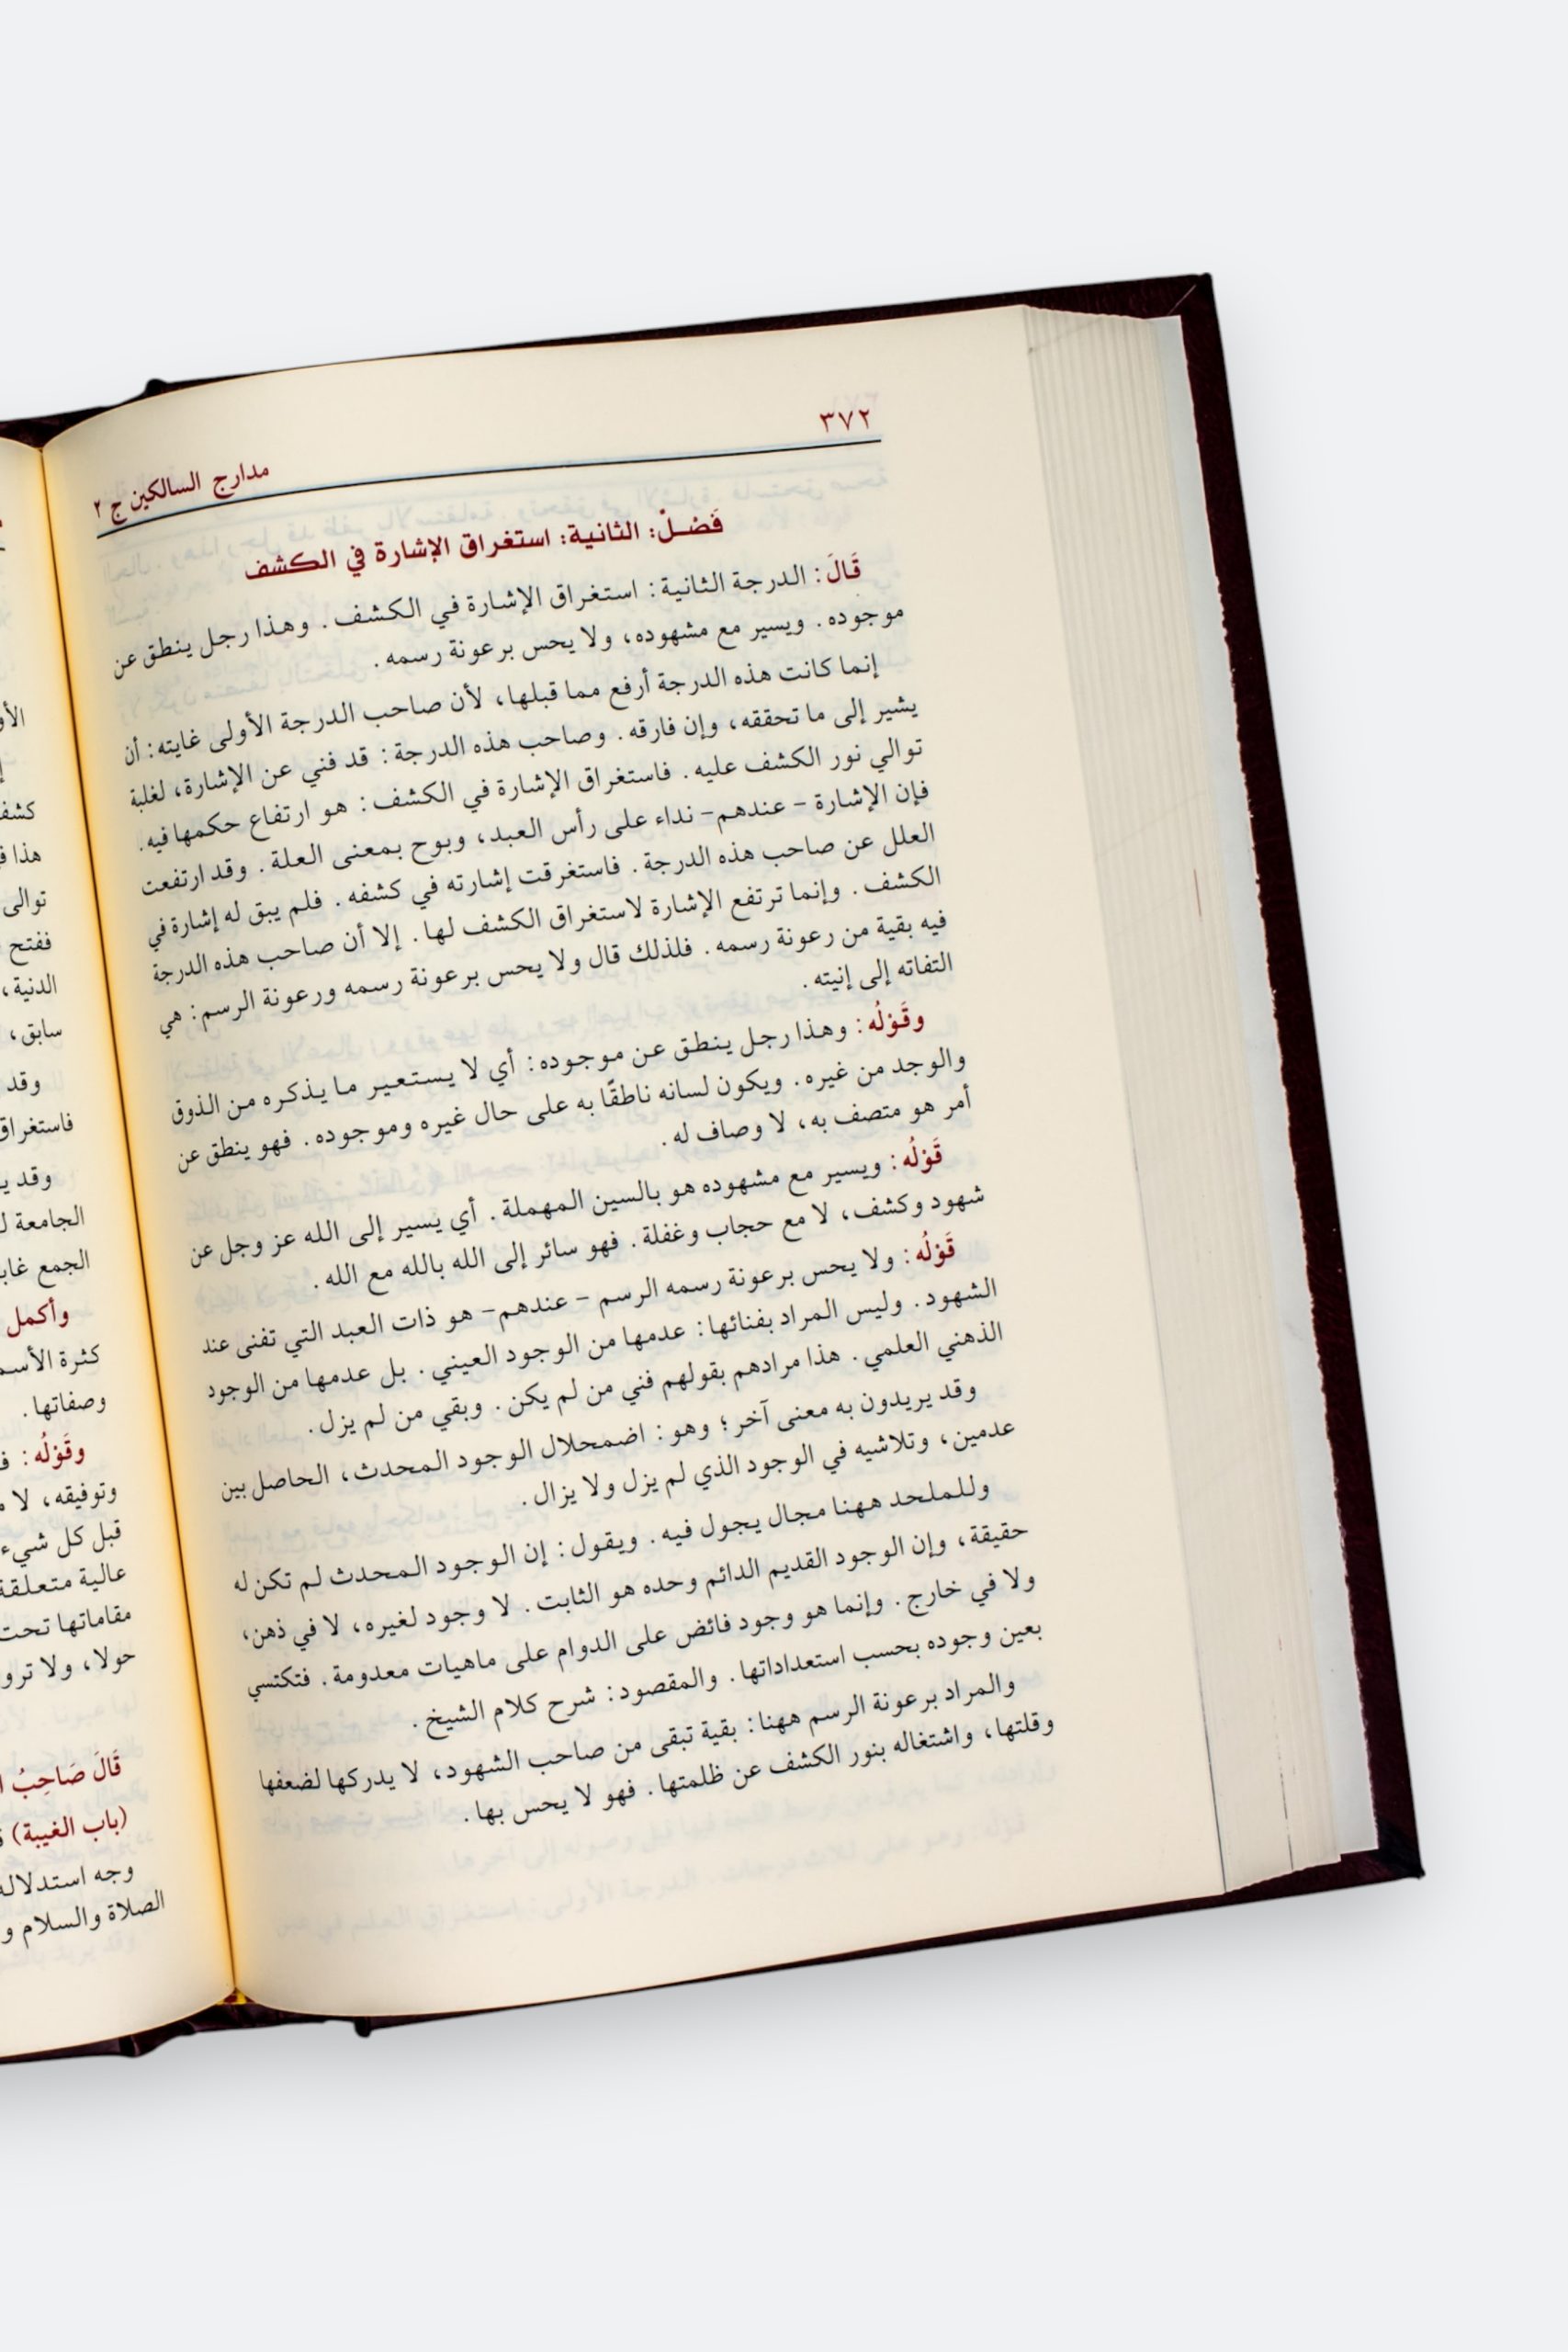 ٣٧٢
مدارج السالكين ج ٢
فَصْلٌ: الثانية: استغراق الإشارة في الكشف
قَالَ: الدرجة الثانية: استغراق الإشارة في الكشف. وهذا رجل ينطق عن
موجوده. ويسير مع مشهوده، ولا يحس برعونة رسمه.
إنما كانت هذه الدرجة أرفع مما قبلها، لأن صاحب الدرجة الأولى غايته: أن
يشير إلى ما تحققه، وإن فارقه. وصاحب هذه الدرجة: قد فني عن الإشارة، لغلبة
توالي نور الكشف عليه. فاستغراق الإشارة في الكشف: هو ارتفاع حكمها فيه.
فإن الإشارة - عندهم- نداء على رأس العبد، وبوح بمعنى العلة. وقد ارتفعت
العلل عن صاحب هذه الدرجة. فاستغرقت إشارته في كشفه. فلم يبق له إشارة في
الكشف. وإنما ترتفع الإشارة لاستغراق الكشف لها. إلا أن صاحب هذه الدرجة
فيه بقية من رعونة رسمه. فلذلك قال ولا يحس برعونة رسمه ورعونة الرسم: هي
التفاته إلى إنيته.
وقَوْلُه: وهذا رجل ينطق عن موجوده: أي لا يستعير ما يذكره من الذوق
والوجد من غيره. ويكون لسانه ناطقًا به على حال غيره وموجوده. فهو ينطق عن
أمر هو متصف به، لا وصاف له.
قَوْلُه: ويسير مع مشهوده هو بالسين المهملة. أي يسير إلى الله عز وجل عن
شهود وكشف، لا مع حجاب وغفلة. فهو سائر إلى الله بالله مع الله.
قَوْلُه: ولا يحس برعونة رسمه الرسم - عندهم- هو ذات العبد التي تفنى عند
الشهود. وليس المراد بفنائها: عدمها من الوجود العيني. بل عدمها من الوجود
الذهني العلمي. هذا مرادهم بقولهم فني من لم يكن. وبقي من لم يزل.
وقد يريدون به معنى آخر؛ وهو: اضمحلال الوجود المحدث، الحاصل بين
عدمين، وتلاشيه في الوجود الذي لم يزل ولا يزال.
وللملحد ههنا مجال يجول فيه. ويقول: إن الوجود المحدث لم تكن له
حقيقة، وإن الوجود القديم الدائم وحده هو الثابت. لا وجود لغيره، لا في ذهن،
ولا في خارج. وإنما هو وجود فائض على الدوام على ماهيات معدومة. فتكتسي
بعين وجوده بحسب استعداداتها. والمقصود: شرح كلام الشيخ.
والمراد برعونة الرسم ههنا: بقية تبقى من صاحب الشهود، لا يدركها لضعفها
وقلتها، واشتغاله بنور الكشف عن ظلمتها. فهو لا يحس بها.
توالى
ففتح
الدنية،
سابق،
وقد
وقد
الجامعة
الجمع
وأكمل
كثرة
وصفاتها.
وقَوْلُه:
وتوفيقه، لا
قبل كل شيء
عالية متعلقة
مقاماتها تحت
حولا، ولا
قَالَ صَاحِبُ
(باب الغيبة)
وجه
الصلاة والسلام